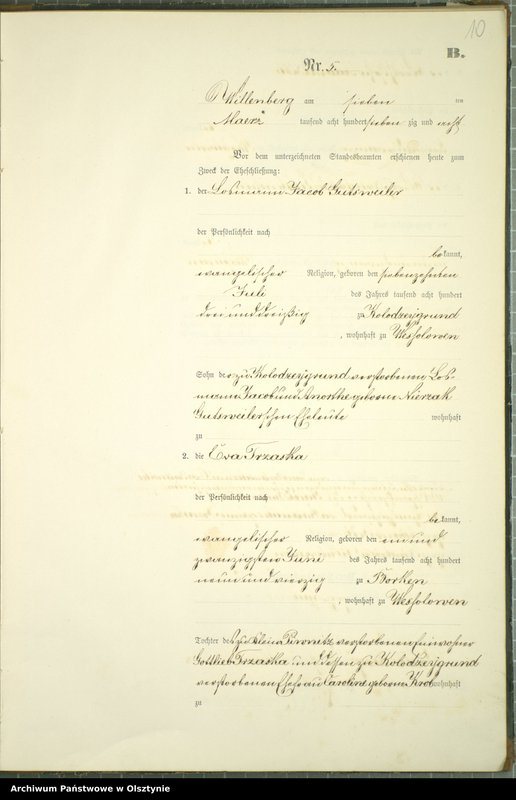 10
B.
Nr. 5.
Willenberg am sieben ten
Maerz tausend acht hundert sieben zig und acht
Vor dem unterzeichneten Standesbeamten erschienen heute zum
Zweck der Eheschließung:
1. der Losmann Jacob Gutsweiler
der Persönlichkeit nach
bekannt,
evangelischer Religion, geboren den siebenzehnten
Juli des Jahres tausend acht hundert
dreiunddreißig zu Kolodzeygrund
, wohnhaft zu Wessolowen
Sohn der zu Kolodzeygrund verstorbenen Los-
mann Jacob und Anorthe geborne Nierzak
Gutsweilerschen Eheleute wohnhaft
zu
2. die Eva Trzaska
der Persönlichkeit nach
bekannt,
evangelischer Religion, geboren den ein und
zwanzigsten Juni des Jahres tausend acht hundert
neun und vierzig zu Borken
, wohnhaft zu Wessolowen
Tochter des zu Klein Piwnitz verstorbenen Einwohner
Gottlieb Trzaska und dessen zu Kolodzeygrund
verstorbenen Ehefrau Caroline geborne Krol wohnhaft
zu
Archiwum Państwowe w Olsztynie